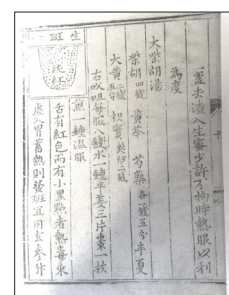 一盞去渣入生蜜少許不拘時熱服以利
為度
大柴胡湯
柴胡四錢 黃芩 芍藥各錢五分 半夏
大黃 枳實麸炒二錢
右㕮咀每服八錢水一鍾半姜三片棗一枚
煎一鍾溫服
生班一
純紅
舌有紅色而有小黑點者熱毒乘
虛入胃蓄熱則發班宜用玄參升